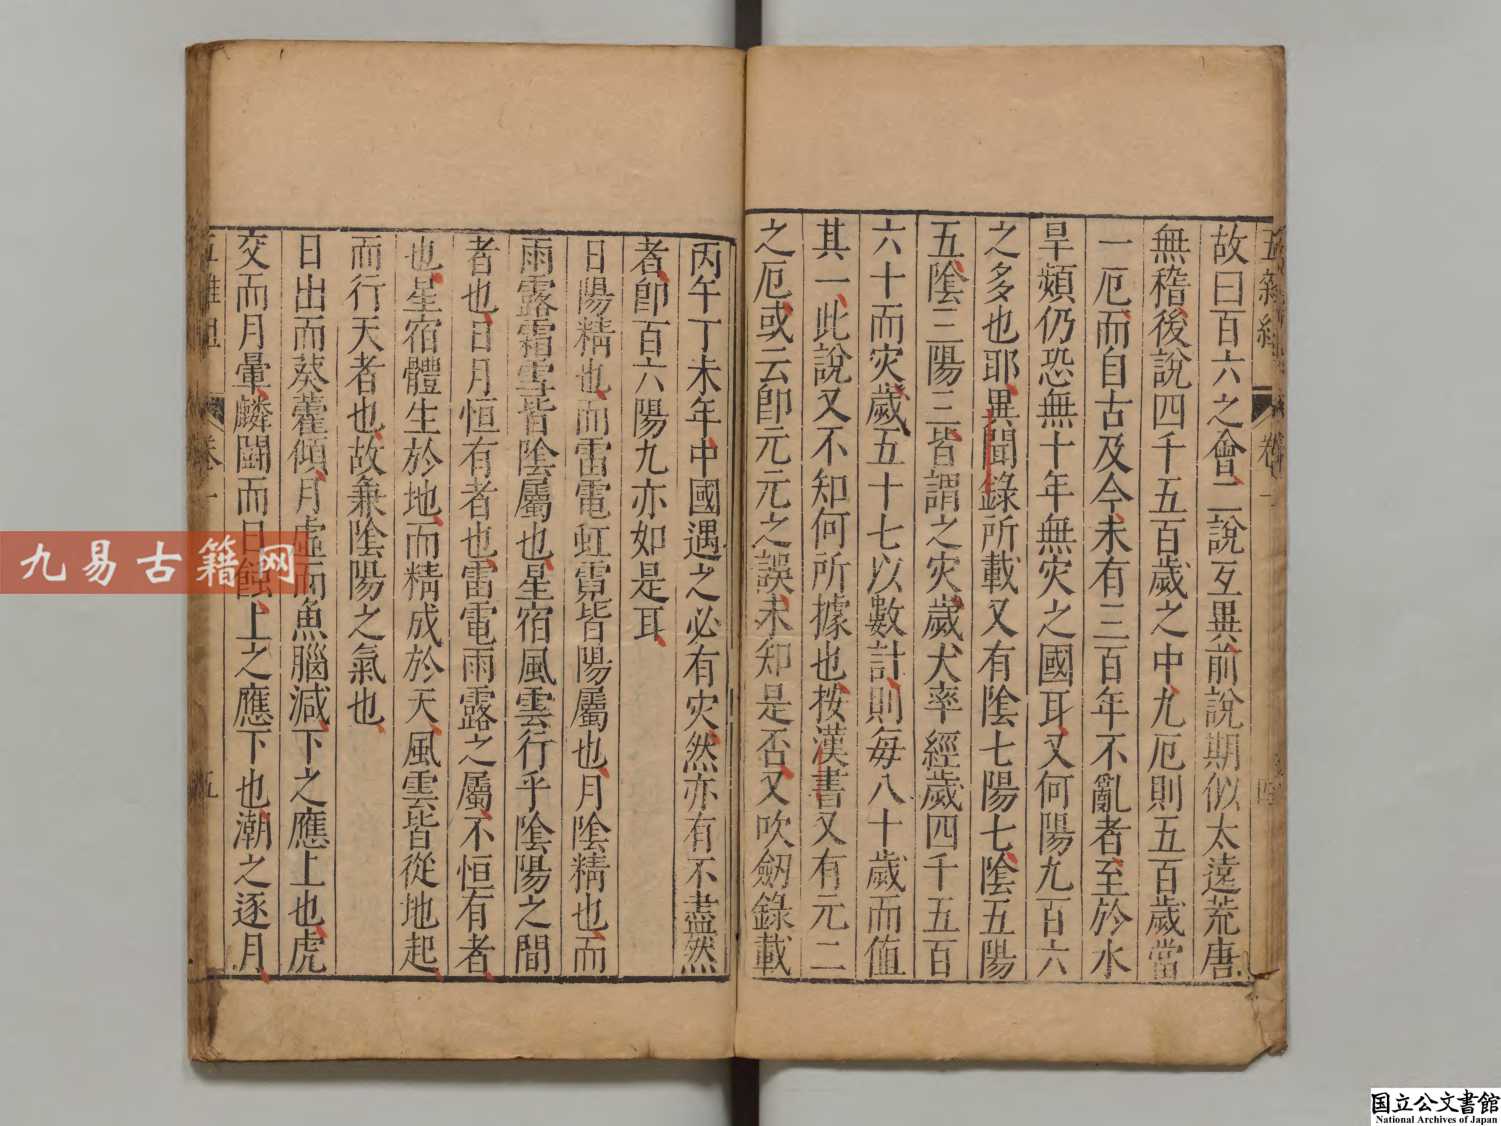 故曰百六之會二說互異前說期似太遠荒唐
無稽後說四千五百歲之中九厄則五百歲當
一厄而自古及今未有三百年不亂者至於水
旱頻仍恐無十年無灾之國耳又何陽九百六
之多也耶異聞錄所載又有陰七陽七陰五陽
五陰三陽三皆謂之灾歲大率經歲四千五百
六十而灾歲五十七以數計則每八十歲而值
其一此說又不知何所據也按漢書又有元二
之厄或云卽元元之誤未知是否又吹劒錄載
丙午丁未年中國遇之必有灾然亦有不盡然
者卽百六陽九亦如是耳
日陽精也而雷電虹霓皆陽屬也月陰精也而
雨露霜雪皆陰屬也星宿風雲行乎陰陽之間
者也日月恒有者也雷電雨露之屬不恒有者
也星宿體生於地而精成於天風雲皆從地起
而行天者也故兼陰陽之氣也
日出而葵藿傾月虛而魚腦減下之應上也虎
交而月暈麟鬭而日蝕上之應下也潮之逐月
卷一
五
九易古籍网
国立公文書館
National Archives of Japan